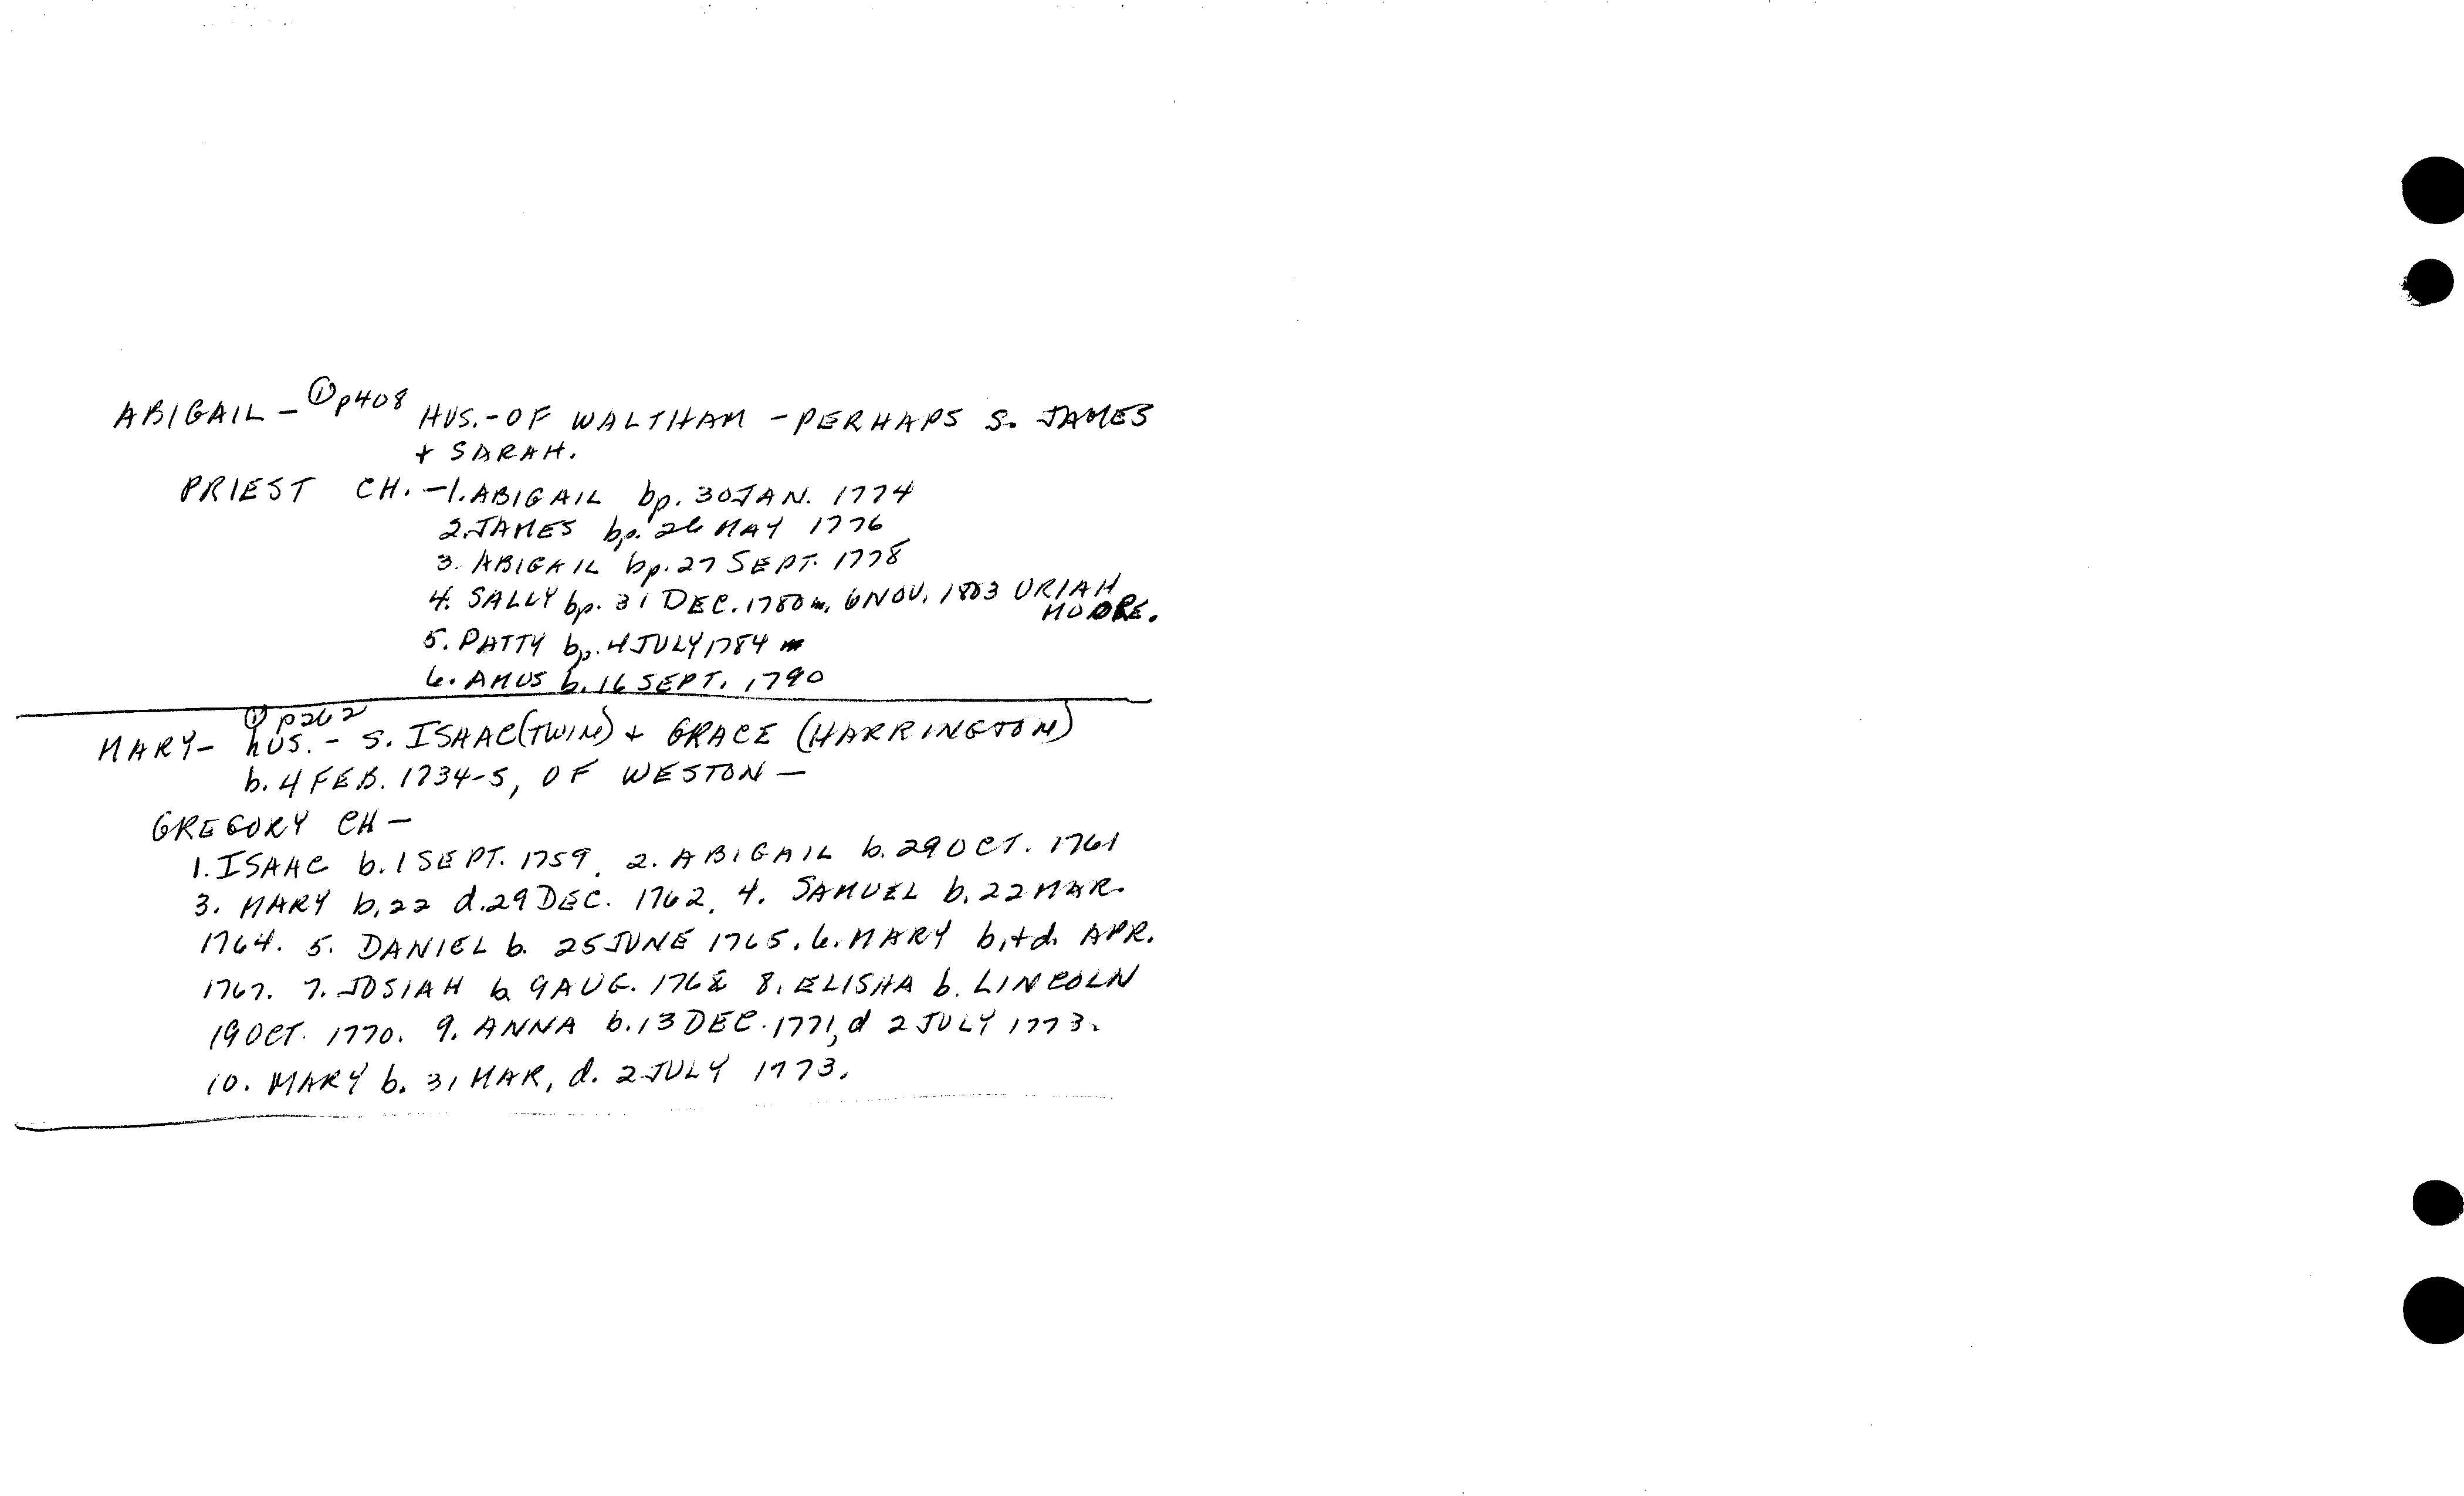 ABIGAIL - ① p408 HUS.- OF WALTHAM - PERHAPS S. JAMES
+ SARAH.
PRIEST CH. - 1. ABIGAIL bp. 30 JAN. 1774
2. JAMES bp. 26 MAY 1776
3. ABIGAIL bp. 27 SEPT. 1778
4. SALLY bp. 31 DEC. 1780 m. 6 NOV. 1803 URIAH
MOORE.
5. PATTY bp. 4 JULY 1784
6. AMOS b. 16 SEPT. 1790
① p262
MARY - hUS. - S. ISAAC (TWIN) + GRACE (HARRINGTON)
b. 4 FEB. 1734-5, OF WESTON -
GREGORY CH -
1. ISAAC b. 1 SEPT. 1759. 2. ABIGAIL b. 29 OCT. 1761
3. MARY b. 22 d. 29 DEC. 1762. 4. SAMUEL b. 22 MAR.
1764. 5. DANIEL b. 25 JUNE 1765. 6. MARY b. + d. APR.
1767. 7. JOSIAH b. 9 AUG. 1768 8. ELISHA b. LINCOLN
19 OCT. 1770. 9. ANNA b. 13 DEC. 1771, d 2 JULY 1773.
10. MARY b. 31 MAR, d. 2 JULY 1773.